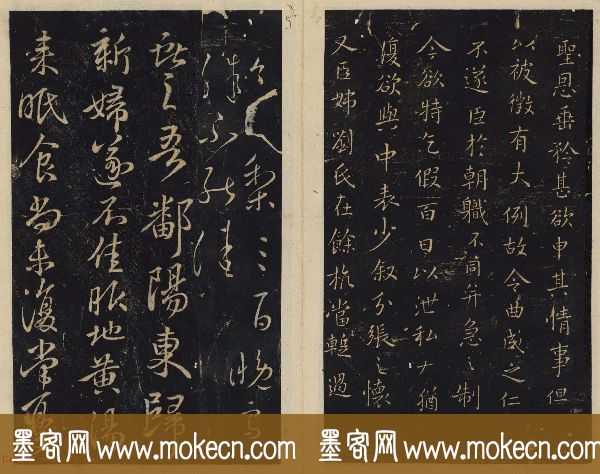 聖恩垂矜甚欲申其情事但
以被徵有大例故令曲成之仁
不遂臣於朝職不同并急之制
今欲特乞假百日以泄私
復欲與中表少叙分張之懷
又臣姊劉氏在餘杭當輒過
梨三百晚雪
殊不能佳
吾鄱陽東歸
新婦遂不佳服地黃湯
来眠食尚未復常
墨客网 www.mokecn.com
墨客网 www.mokecn.com